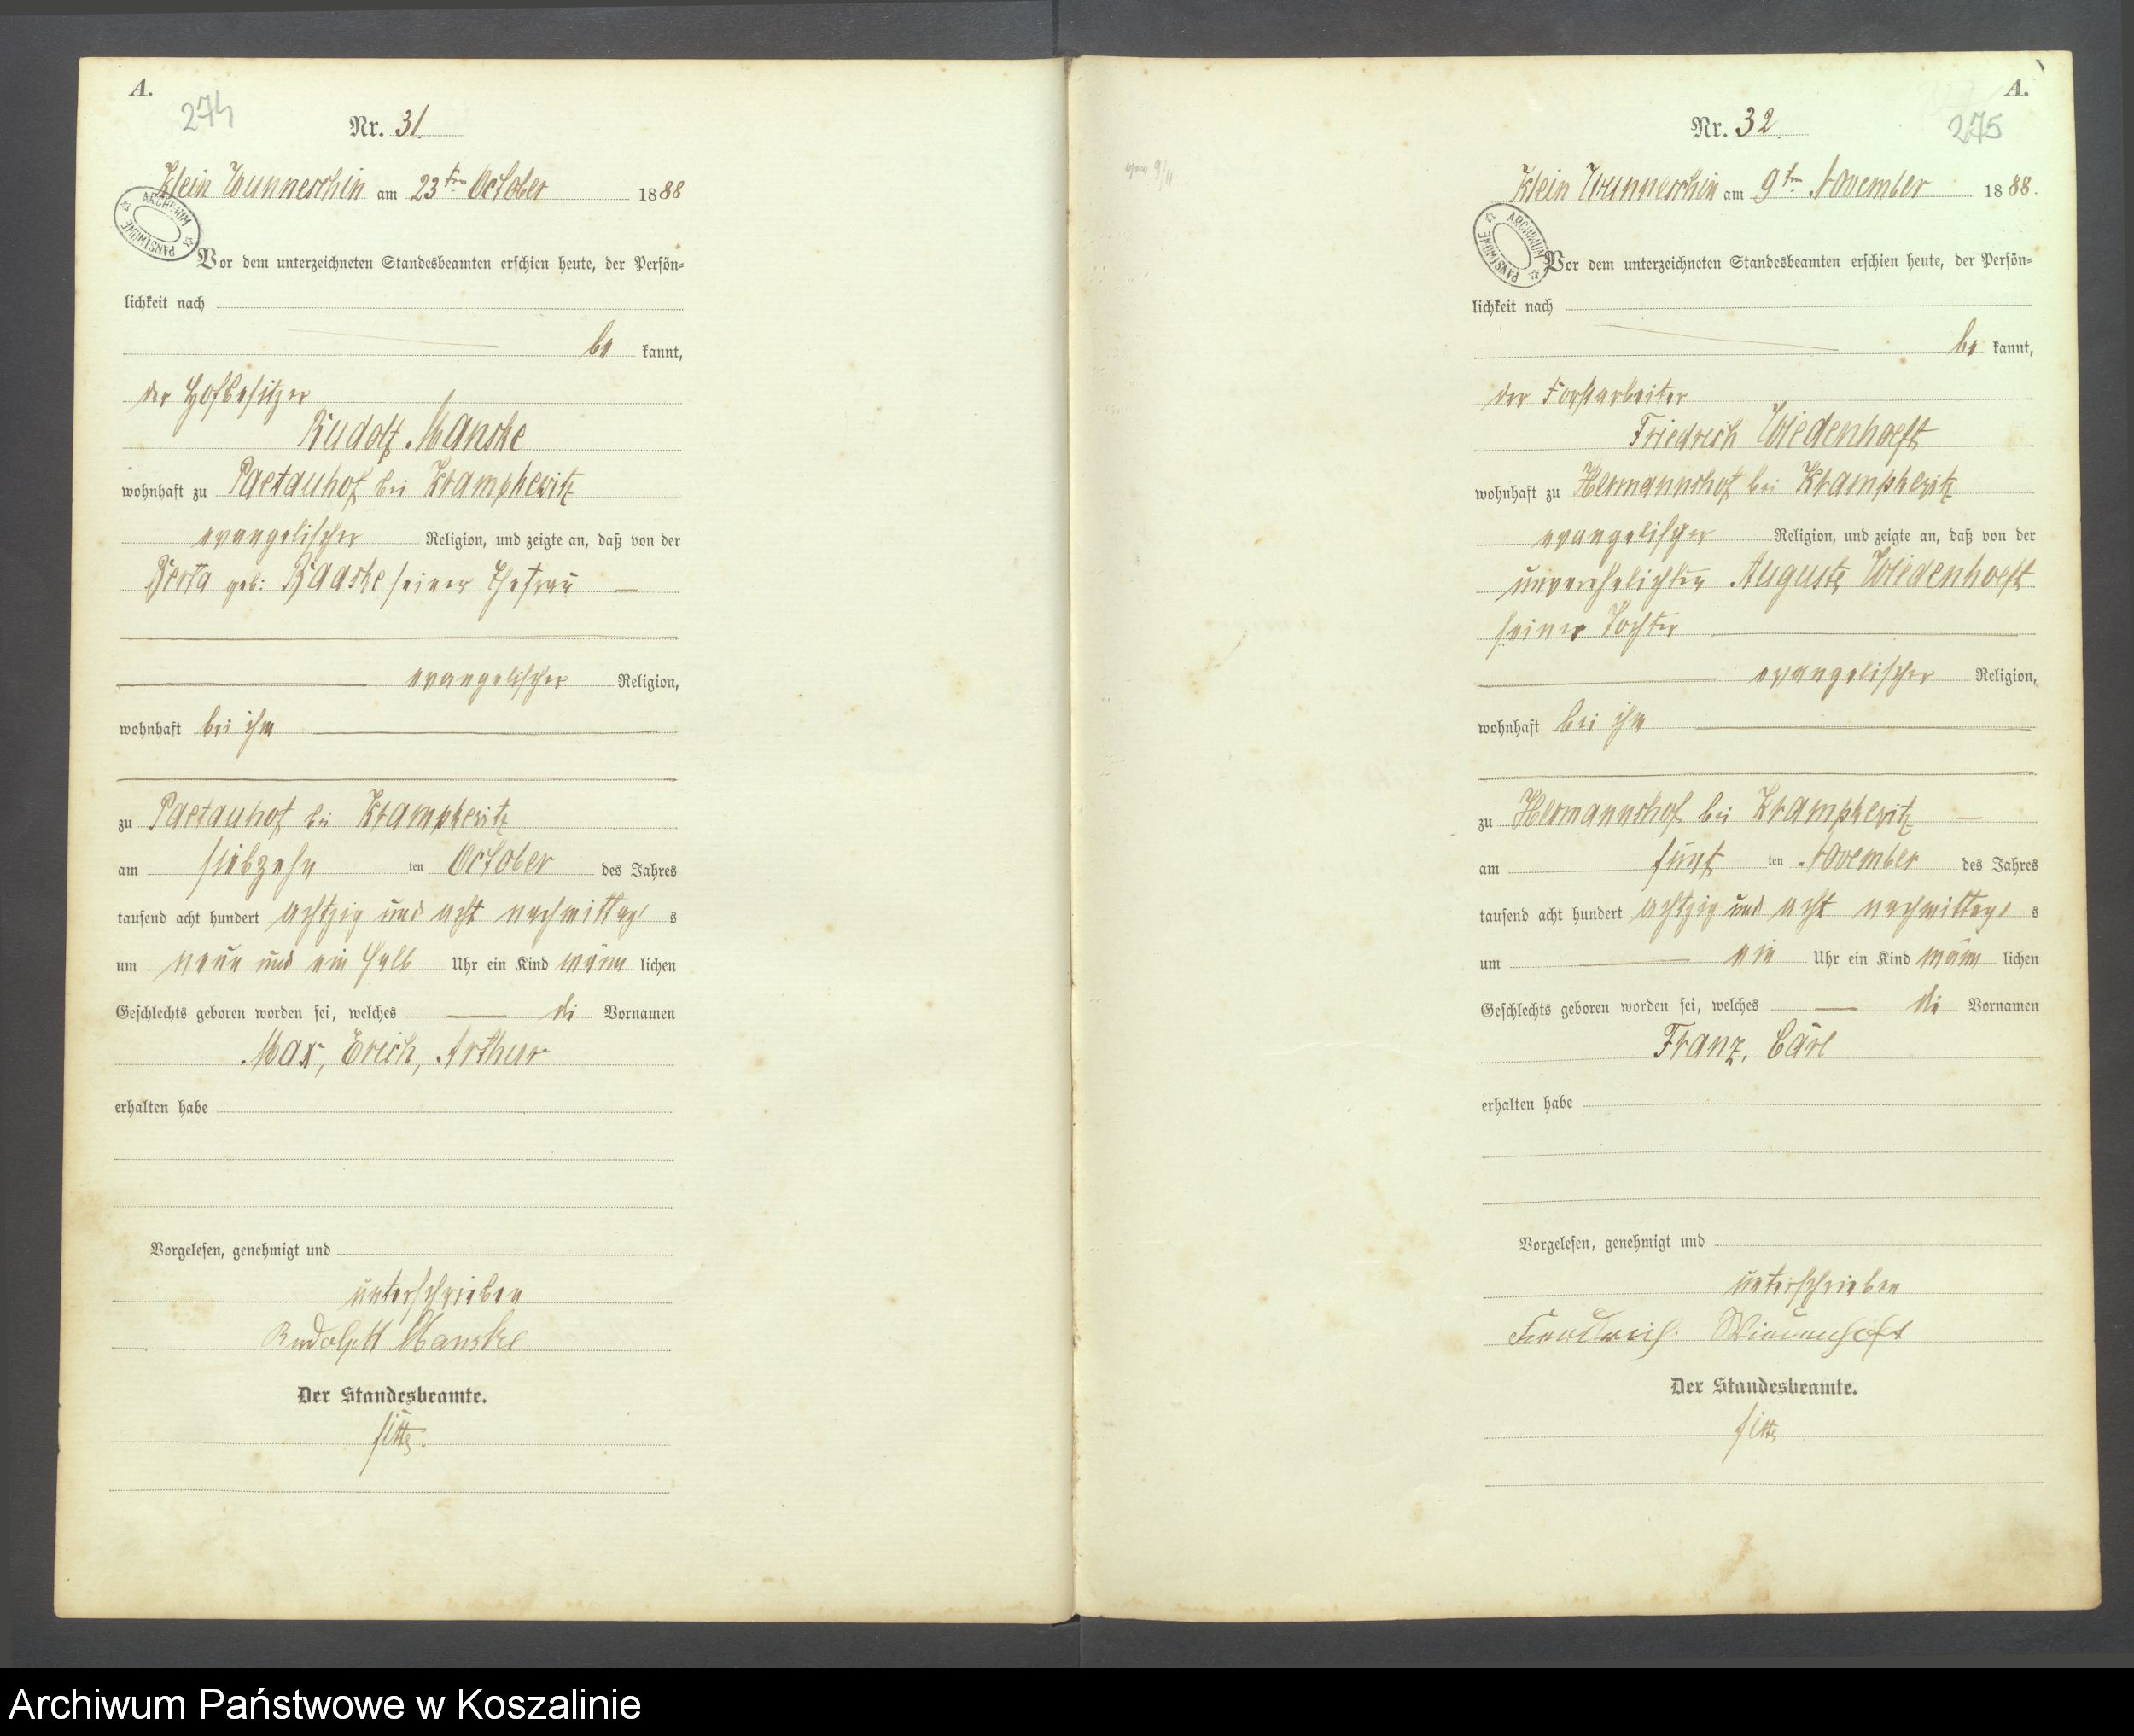 A.
274
Nr. 31.
Klein Wunneschin am 23ten October 1888
ARCHIWUM PAŃSTWOWE
Vor dem unterzeichneten Standesbeamten erschien heute, der Persön-
lichkeit nach
be kannt,
der Hofbesitzer
Rudolf Manske
wohnhaft zu Paetauhof bei Krampkewitz
evangelischer Religion, und zeigte an, daß von der
Berta geb: Baaske seiner Ehefrau
evangelischer Religion,
wohnhaft bei ihm
zu Paetauhof bei Krampkewitz
am siebzehn ten October des Jahres
tausend acht hundert achtzig und acht nachmittag s
um neun und ein halb Uhr ein Kind männ lichen
Geschlechts geboren worden sei, welches die Vornamen
Max, Erich, Arthur
erhalten habe
Vorgelesen, genehmigt und
unterschrieben
Rudolph Manske
Der Standesbeamte.
A.
275
Nr. 32.
vom 9/11
Klein Wunneschin am 9ten November 1888.
ARCHIWUM PAŃSTWOWE
Vor dem unterzeichneten Standesbeamten erschien heute, der Persön-
lichkeit nach
be kannt,
der Forstarbeiter
Friedrich Wiedenhoeft
wohnhaft zu Hermannshof bei Krampkewitz
evangelischer Religion, und zeigte an, daß von der
unverehelichten Auguste Wiedenhoeft
seiner Tochter
evangelischer Religion,
wohnhaft bei ihm
zu Hermannshof bei Krampkewitz
am fünf ten November des Jahres
tausend acht hundert achtzig und acht nachmittag s
um ein Uhr ein Kind männ lichen
Geschlechts geboren worden sei, welches die Vornamen
Franz, Carl
erhalten habe
Vorgelesen, genehmigt und
unterschrieben
Friedreich Wiedenhöft
Der Standesbeamte.
Archiwum Państwowe w Koszalinie